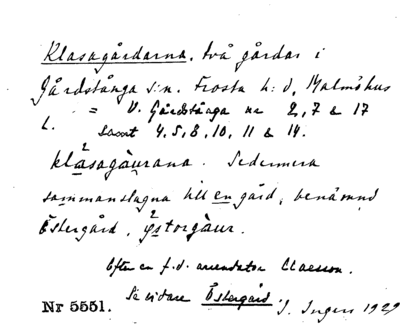 Klasagårdarna, två gårdar i
Gårdstånga s:n. Frosta h:d, Malmöhus
l. = V. Gårdstånga nr 2, 7 & 17
samt 4, 5, 8, 10, 11 & 14.
klasagàurana. Sedermera
sammanslagna till en gård, benämnd
Östergård, ystorgàur.
Efter en f.d. arrendator Claesson.
Se vidare Östergård. J. Ingers 1929
Nr 5551.